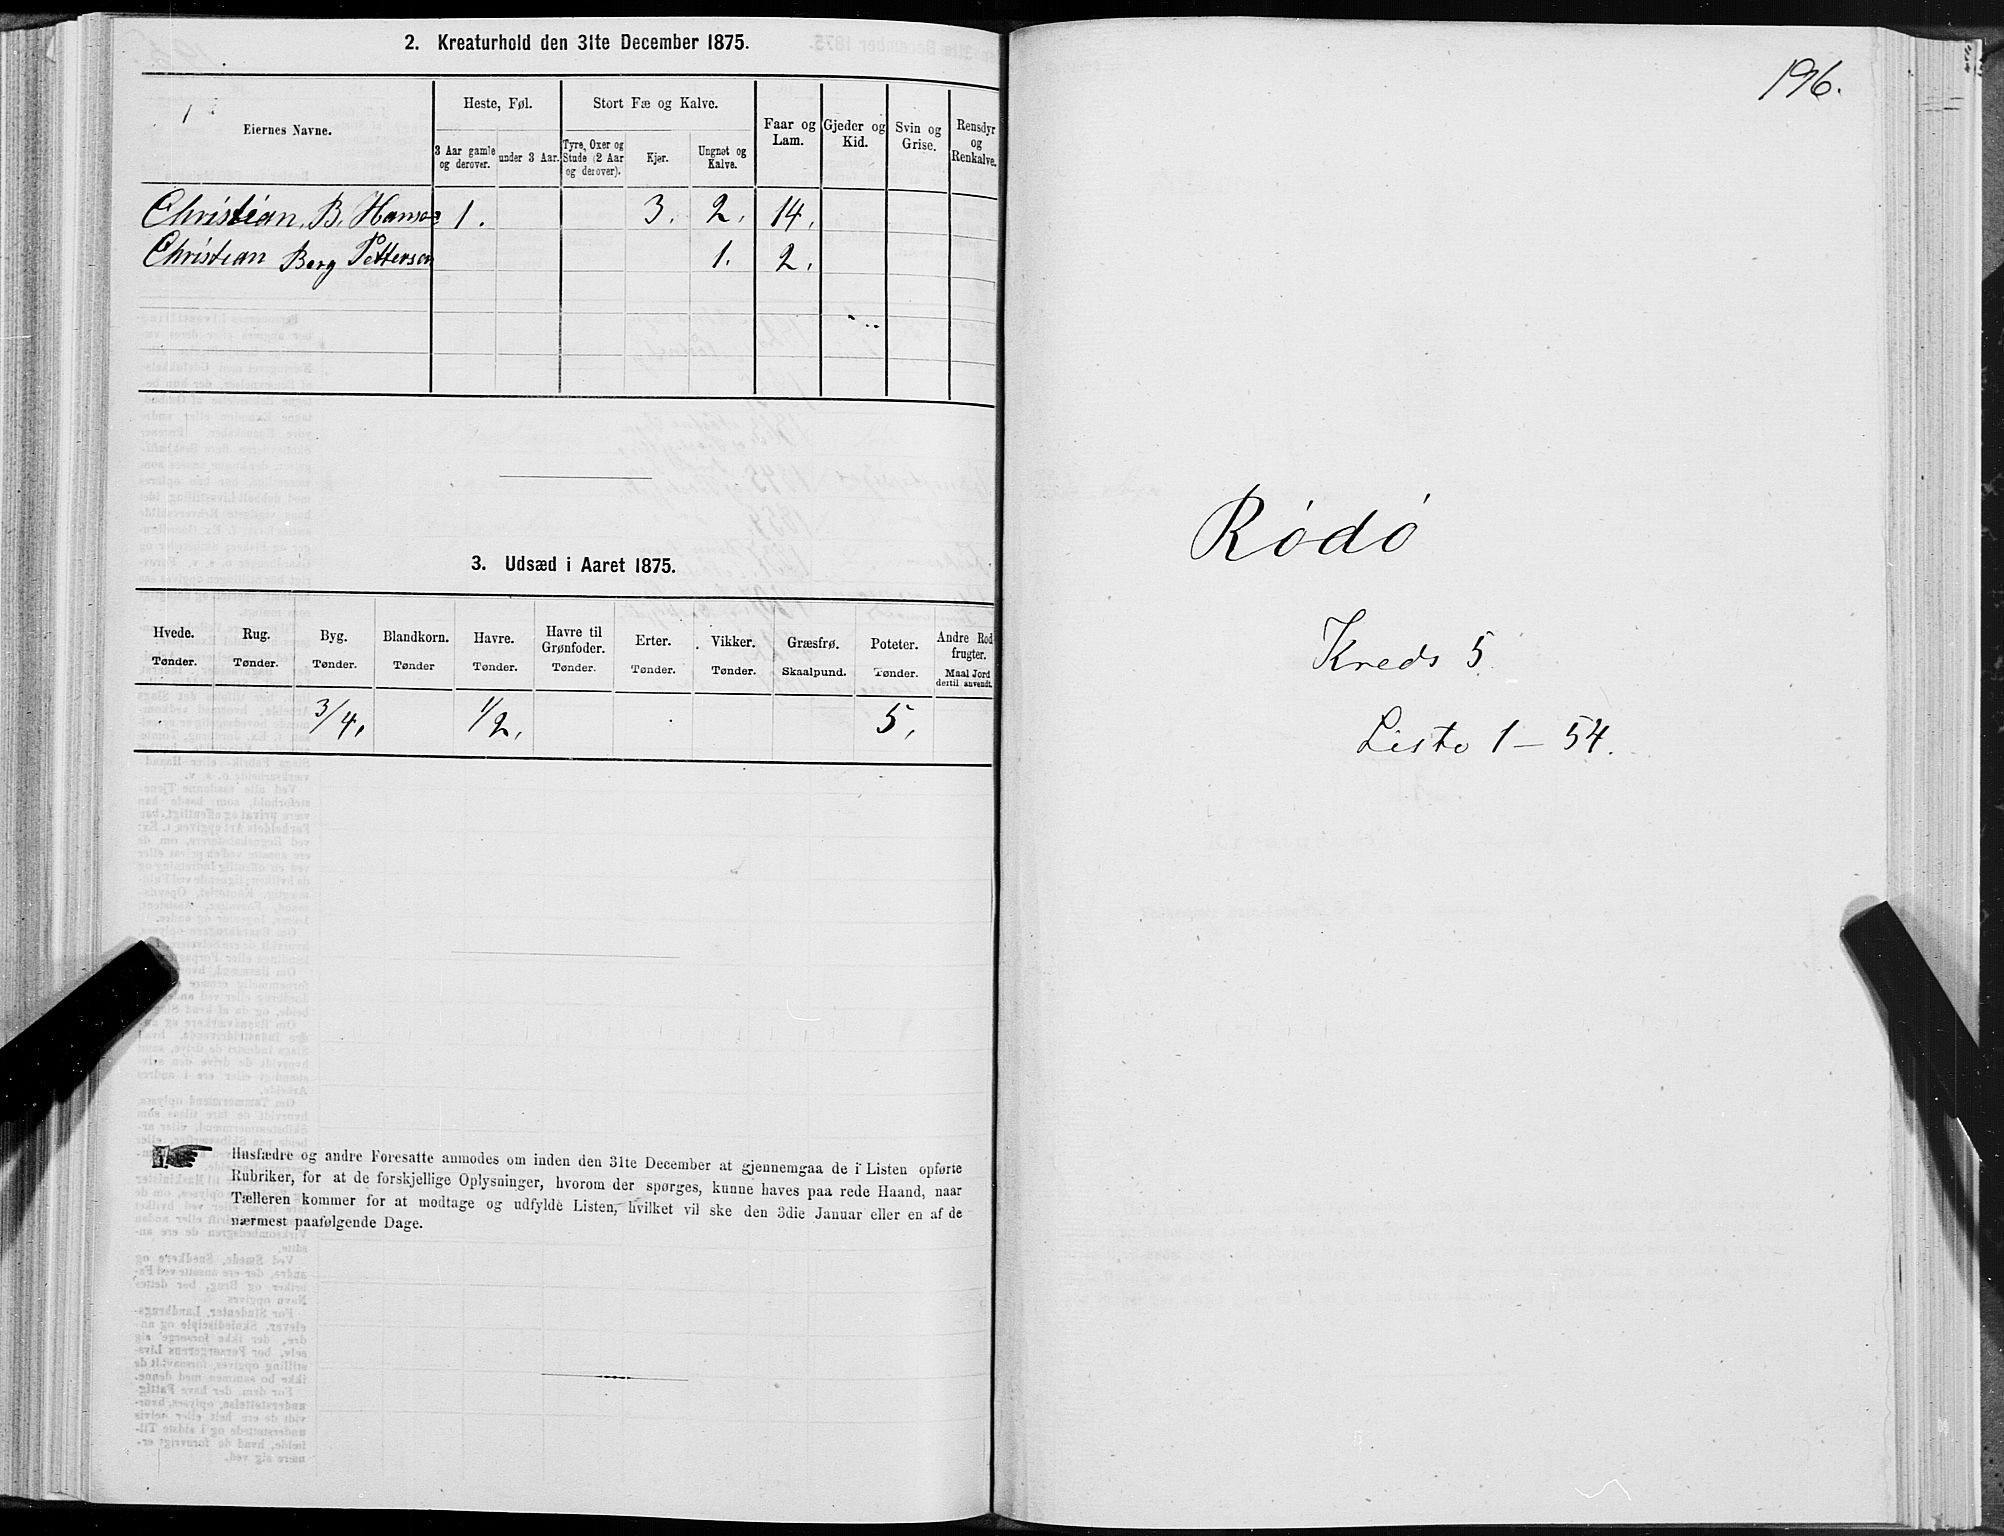 2. Kreaturhold den 31te December 1875.
Eiernes Navne.
Heste, Føl.
3 Aar gamle og derover.
under 3 Aar.
Stort Fæ og Kalve.
Tyre, Oxer og Stude (2 Aar og derover).
Kjør.
Ungnøt og Kalve.
Faar og Lam.
Gjeder og Kid.
Svin og Grise.
Rensdyr og Renkalve.
Christian B. Hansen 1. 3. 2. 14.
Christian Berg Petterson 1. 2.
3. Udsæd i Aaret 1875.
Hvede. Rug. Byg. Blandkorn. Havre. Havre til Grønfoder. Erter. Vikker. Græsfrø. Poteter. Andre Rodfrugter.
Tønder. Tønder. Tønder. Tønder Tønder. Tønder. Tønder. Tønder. Skaalpund. Tønder. Maal Jord dertil anvendt.
3/4. 1/2. 5.
Husfædre og andre Foresatte anmodes om inden den 31te December at gjennemgaa de i Listen opførte
Rubriker, for at de forskjellige Oplysninger, hvorom der spørges, kunne haves paa rede Haand, naar
Tælleren kommer for at modtage og udfylde Listen, hvilket vil ske den 3die Januar eller en af de
nærmest paafølgende Dage.
196.
Rødø
Kreds 5.
Liste 1 – 54.